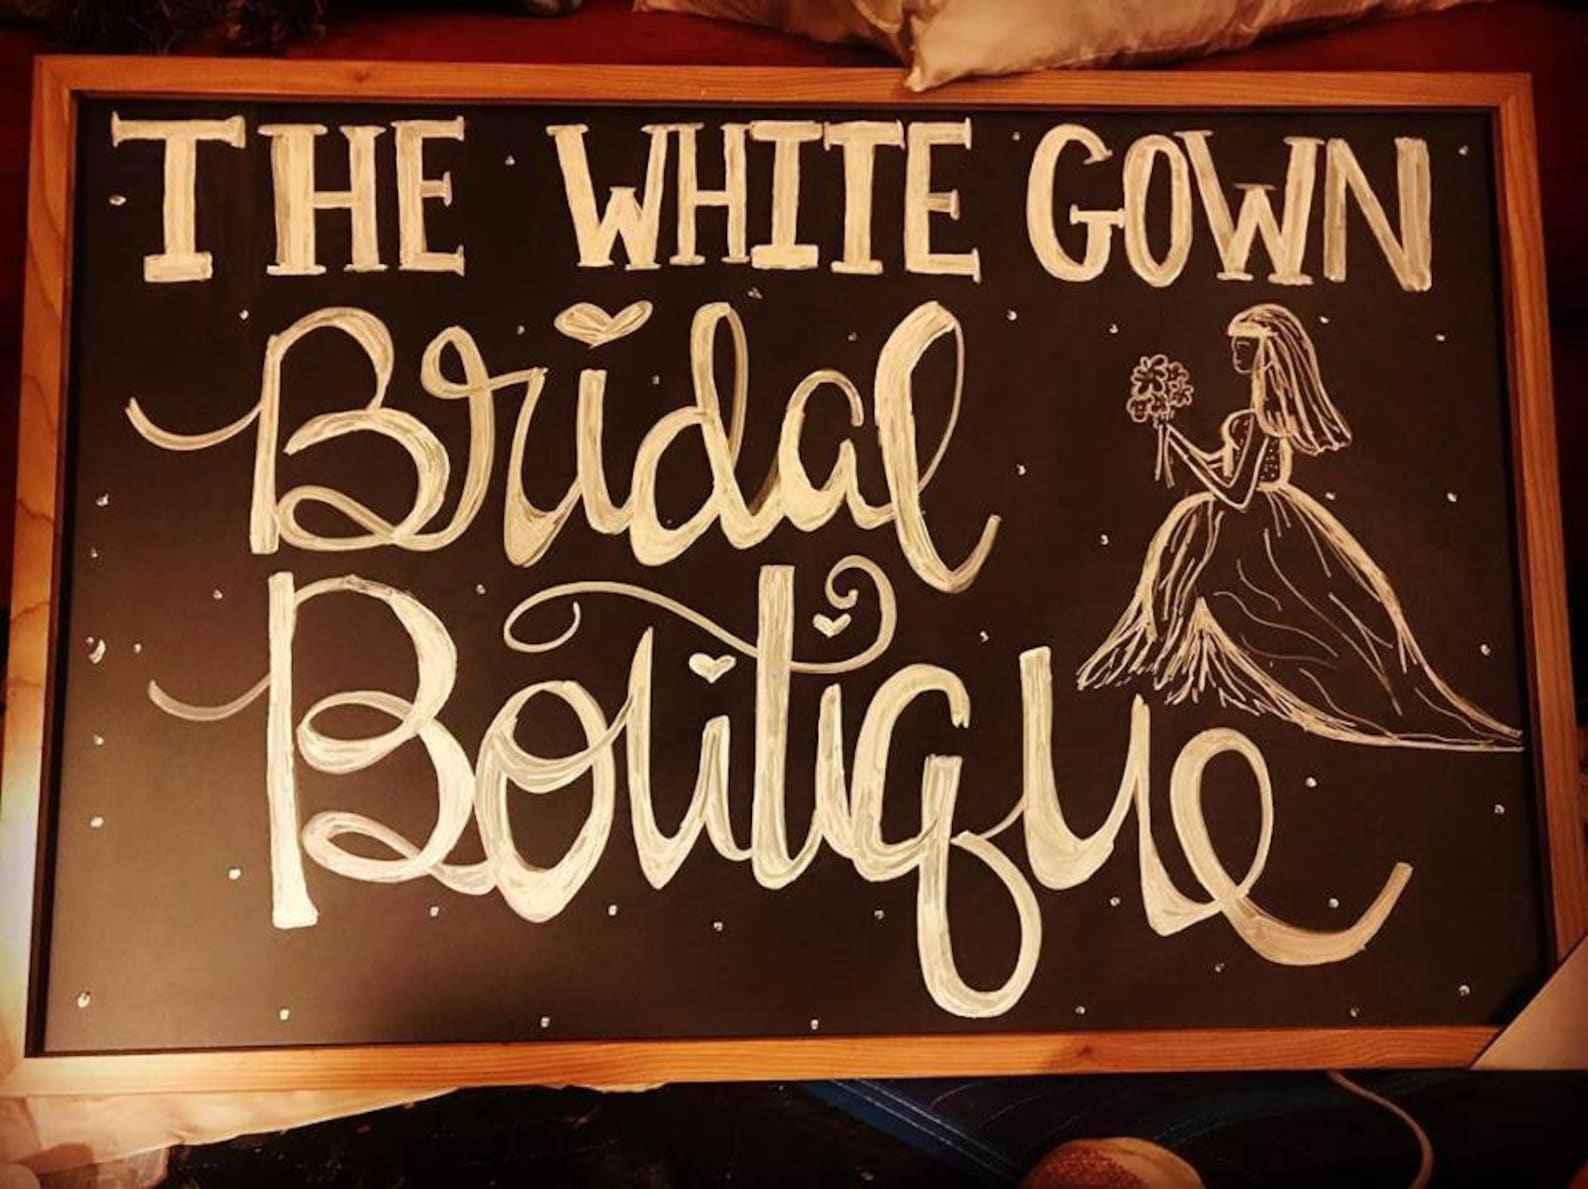 THE WHITE GOWN
Bridal
Boutique